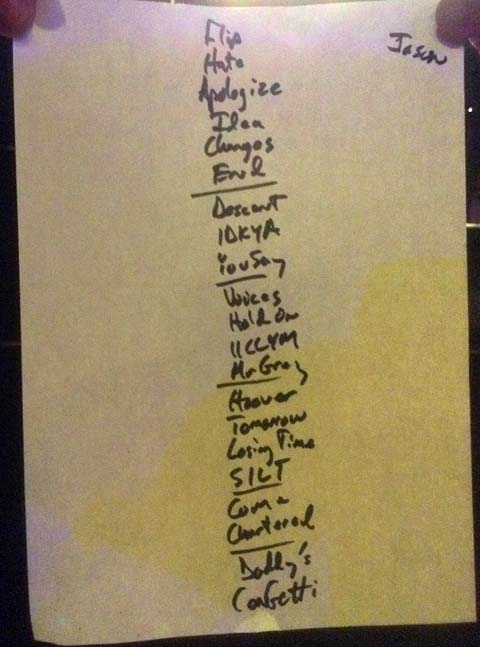 Jason
Flip
Hate
Apologize
Idea
Changes
Enid
Descent
IDKYA
You Say
Voices
Hold On
IICCYM
Mr Grey
Hoover
Tomorrow
Losing Time
SILT
Coma
Chartered
Daddy's
Confetti